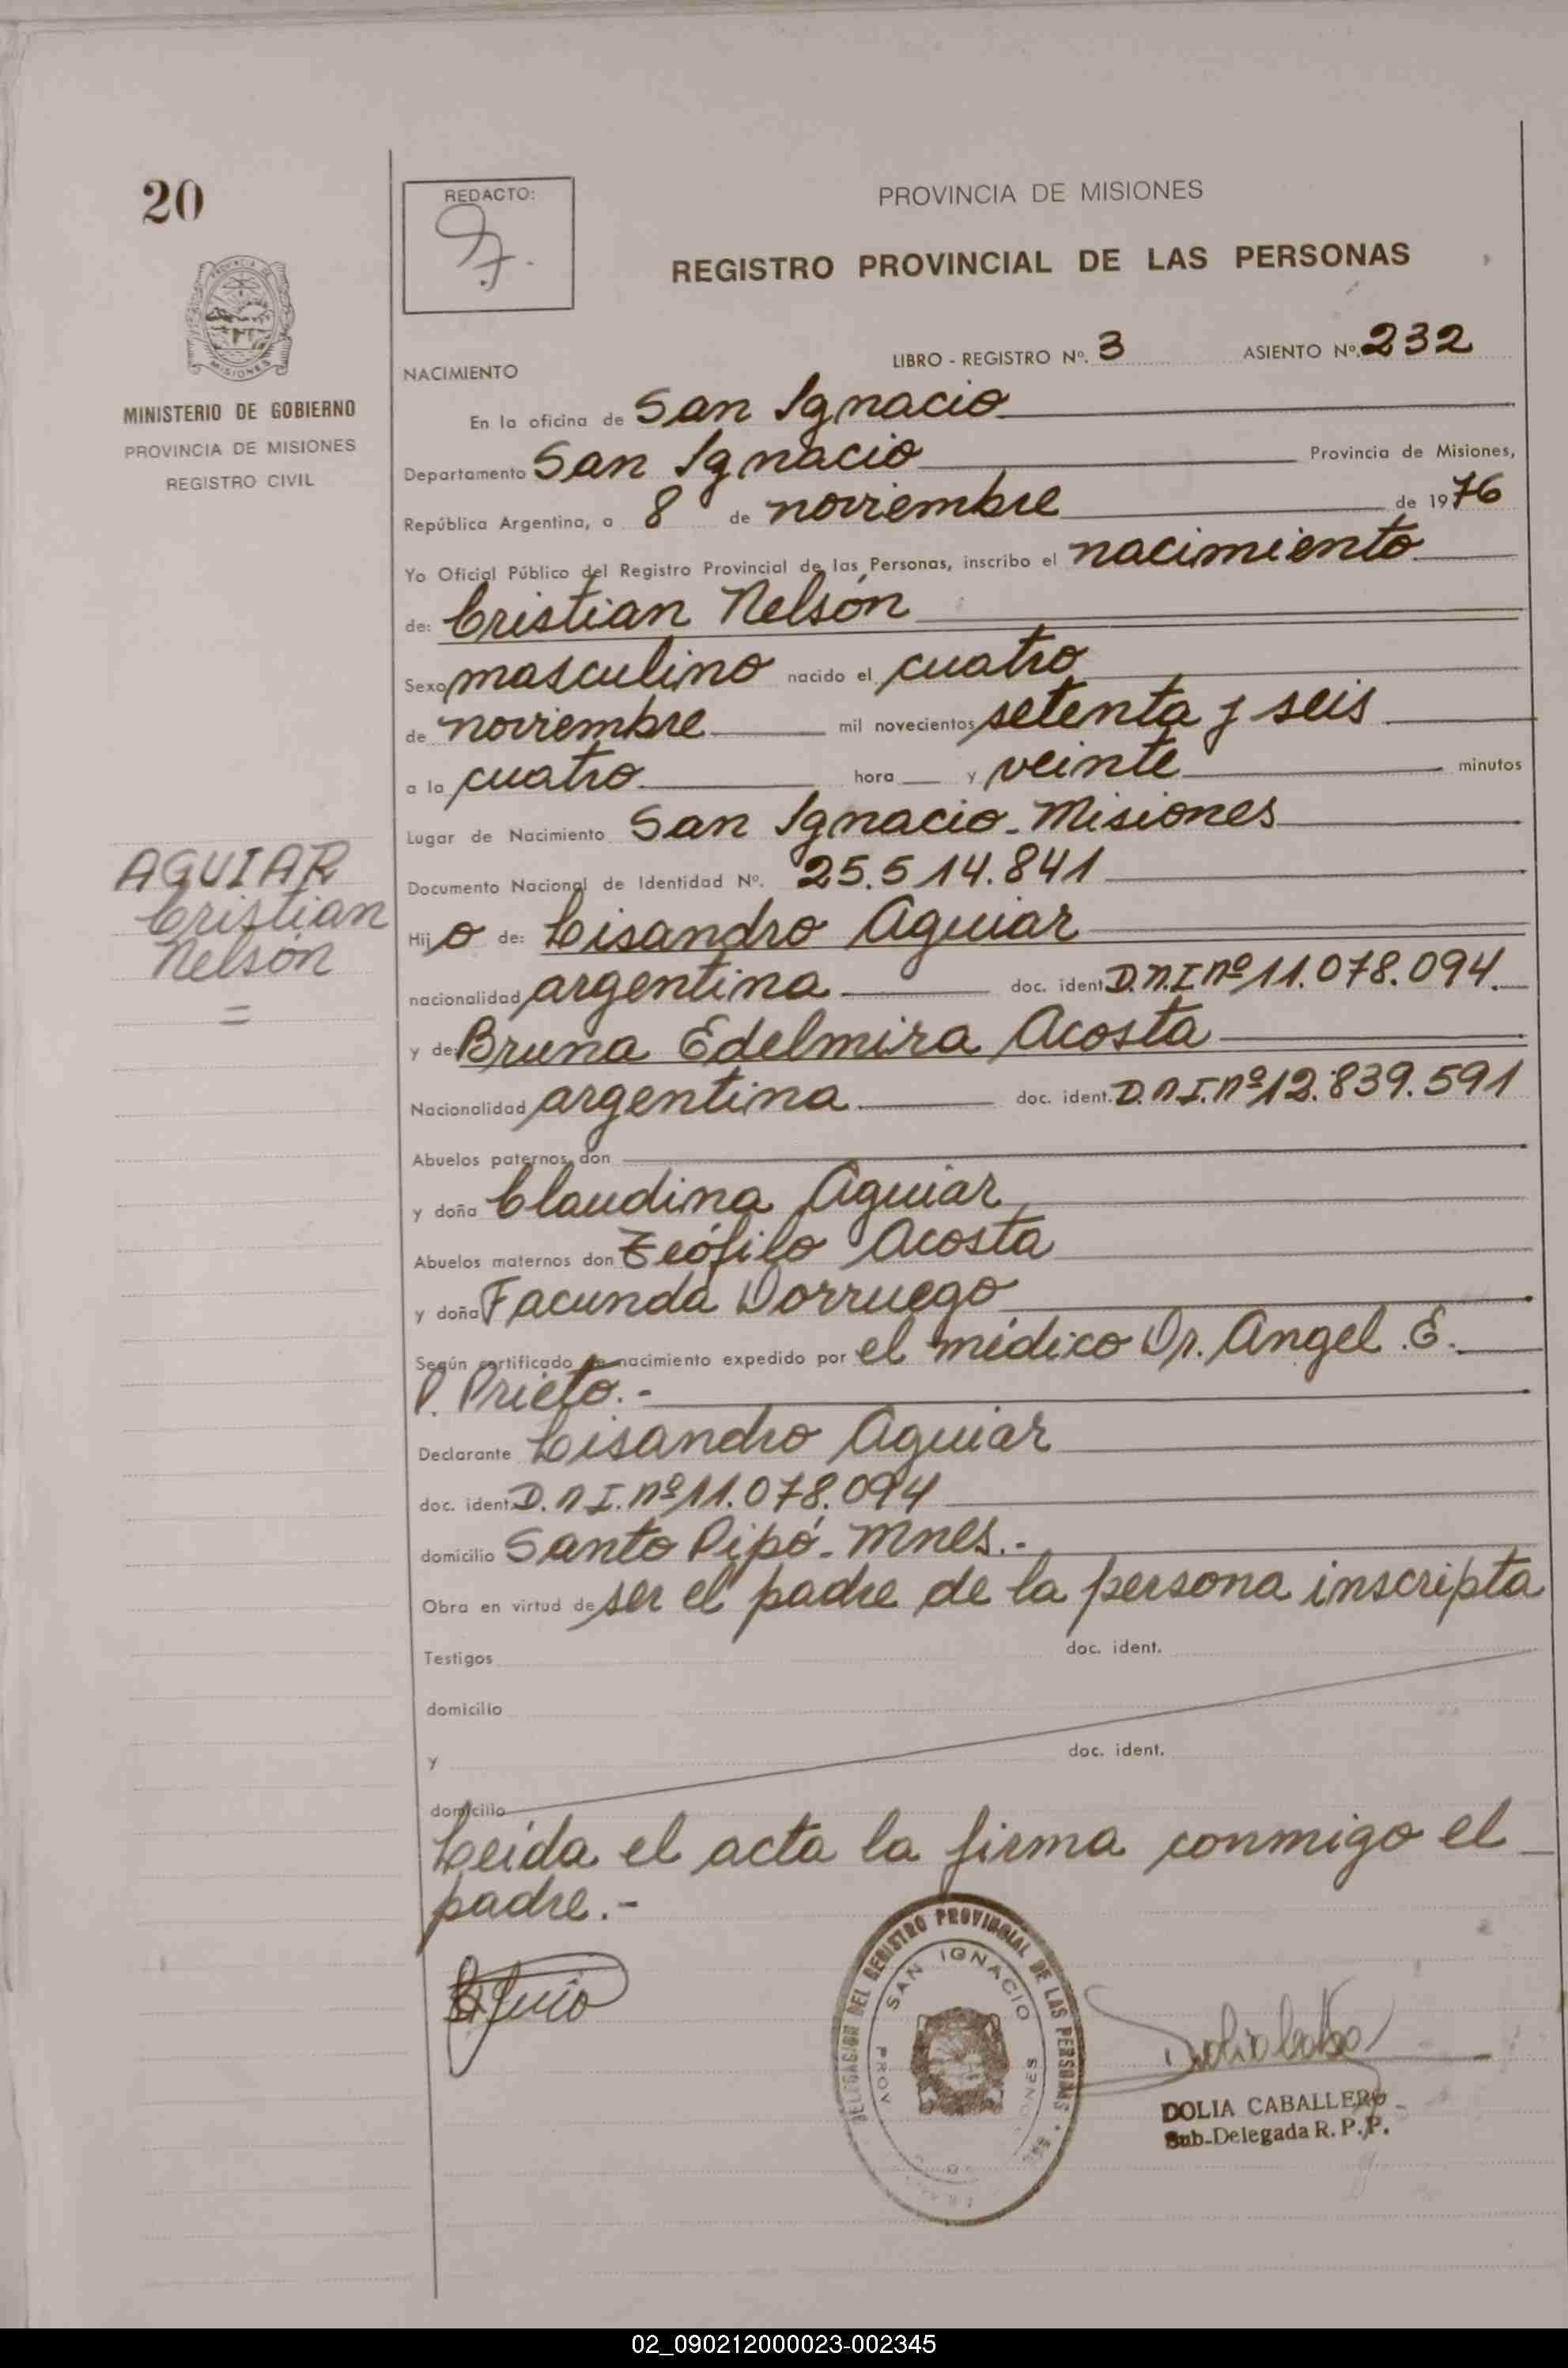 20
REDACTO:
PROVINCIA DE MISIONES
REGISTRO PROVINCIAL DE LAS PERSONAS
PROVINCIA DE
MISIONES
MINISTERIO DE GOBIERNO
PROVINCIA DE MISIONES
REGISTRO CIVIL
LIBRO - REGISTRO Nº. 3 ASIENTO Nº. 232
NACIMIENTO
En la oficina de San Ignacio
Departamento San Ignacio Provincia de Misiones,
República Argentina, a 8 de noviembre de 1976
Yo Oficial Público del Registro Provincial de las Personas, inscribo el nacimiento
de: Cristian Nelsón
Sexo masculino nacido el cuatro
de noviembre mil novecientos setenta y seis
a la cuatro hora y veinte minutos
Lugar de Nacimiento San Ignacio - Misiones
Documento Nacional de Identidad Nº. 25.514.841
AGUIAR
Cristian
Nelsón
=
Hijo de: Lisandro Aguiar
nacionalidad argentina doc. ident. D.N.I. nº 11.078.094.
y de: Bruna Edelmira Acosta
Nacionalidad argentina doc. ident. D.N.I. nº 12.839.591
Abuelos paternos, don
y doña Claudina Aguiar
Abuelos maternos don Teófilo Acosta
y doña Facunda Dorruego
Según certificado de nacimiento expedido por el médico Dr. Angel E.
P. Prieto.-
Declarante Lisandro Aguiar
doc. ident. D.N.I. nº 11.078.094
domicilio Santo Pipó - Mnes.-
Obra en virtud de ser el padre de la persona inscripta
Testigos doc. ident.
domicilio
y doc. ident.
domicilio
Leída el acta la firma conmigo el
padre.-
DELEGACION DEL REGISTRO PROVINCIAL DE LAS PERSONAS
SAN IGNACIO
PROV
DOLIA CABALLERO
Sub-Delegada R. P. P.
02_090212000023-002345